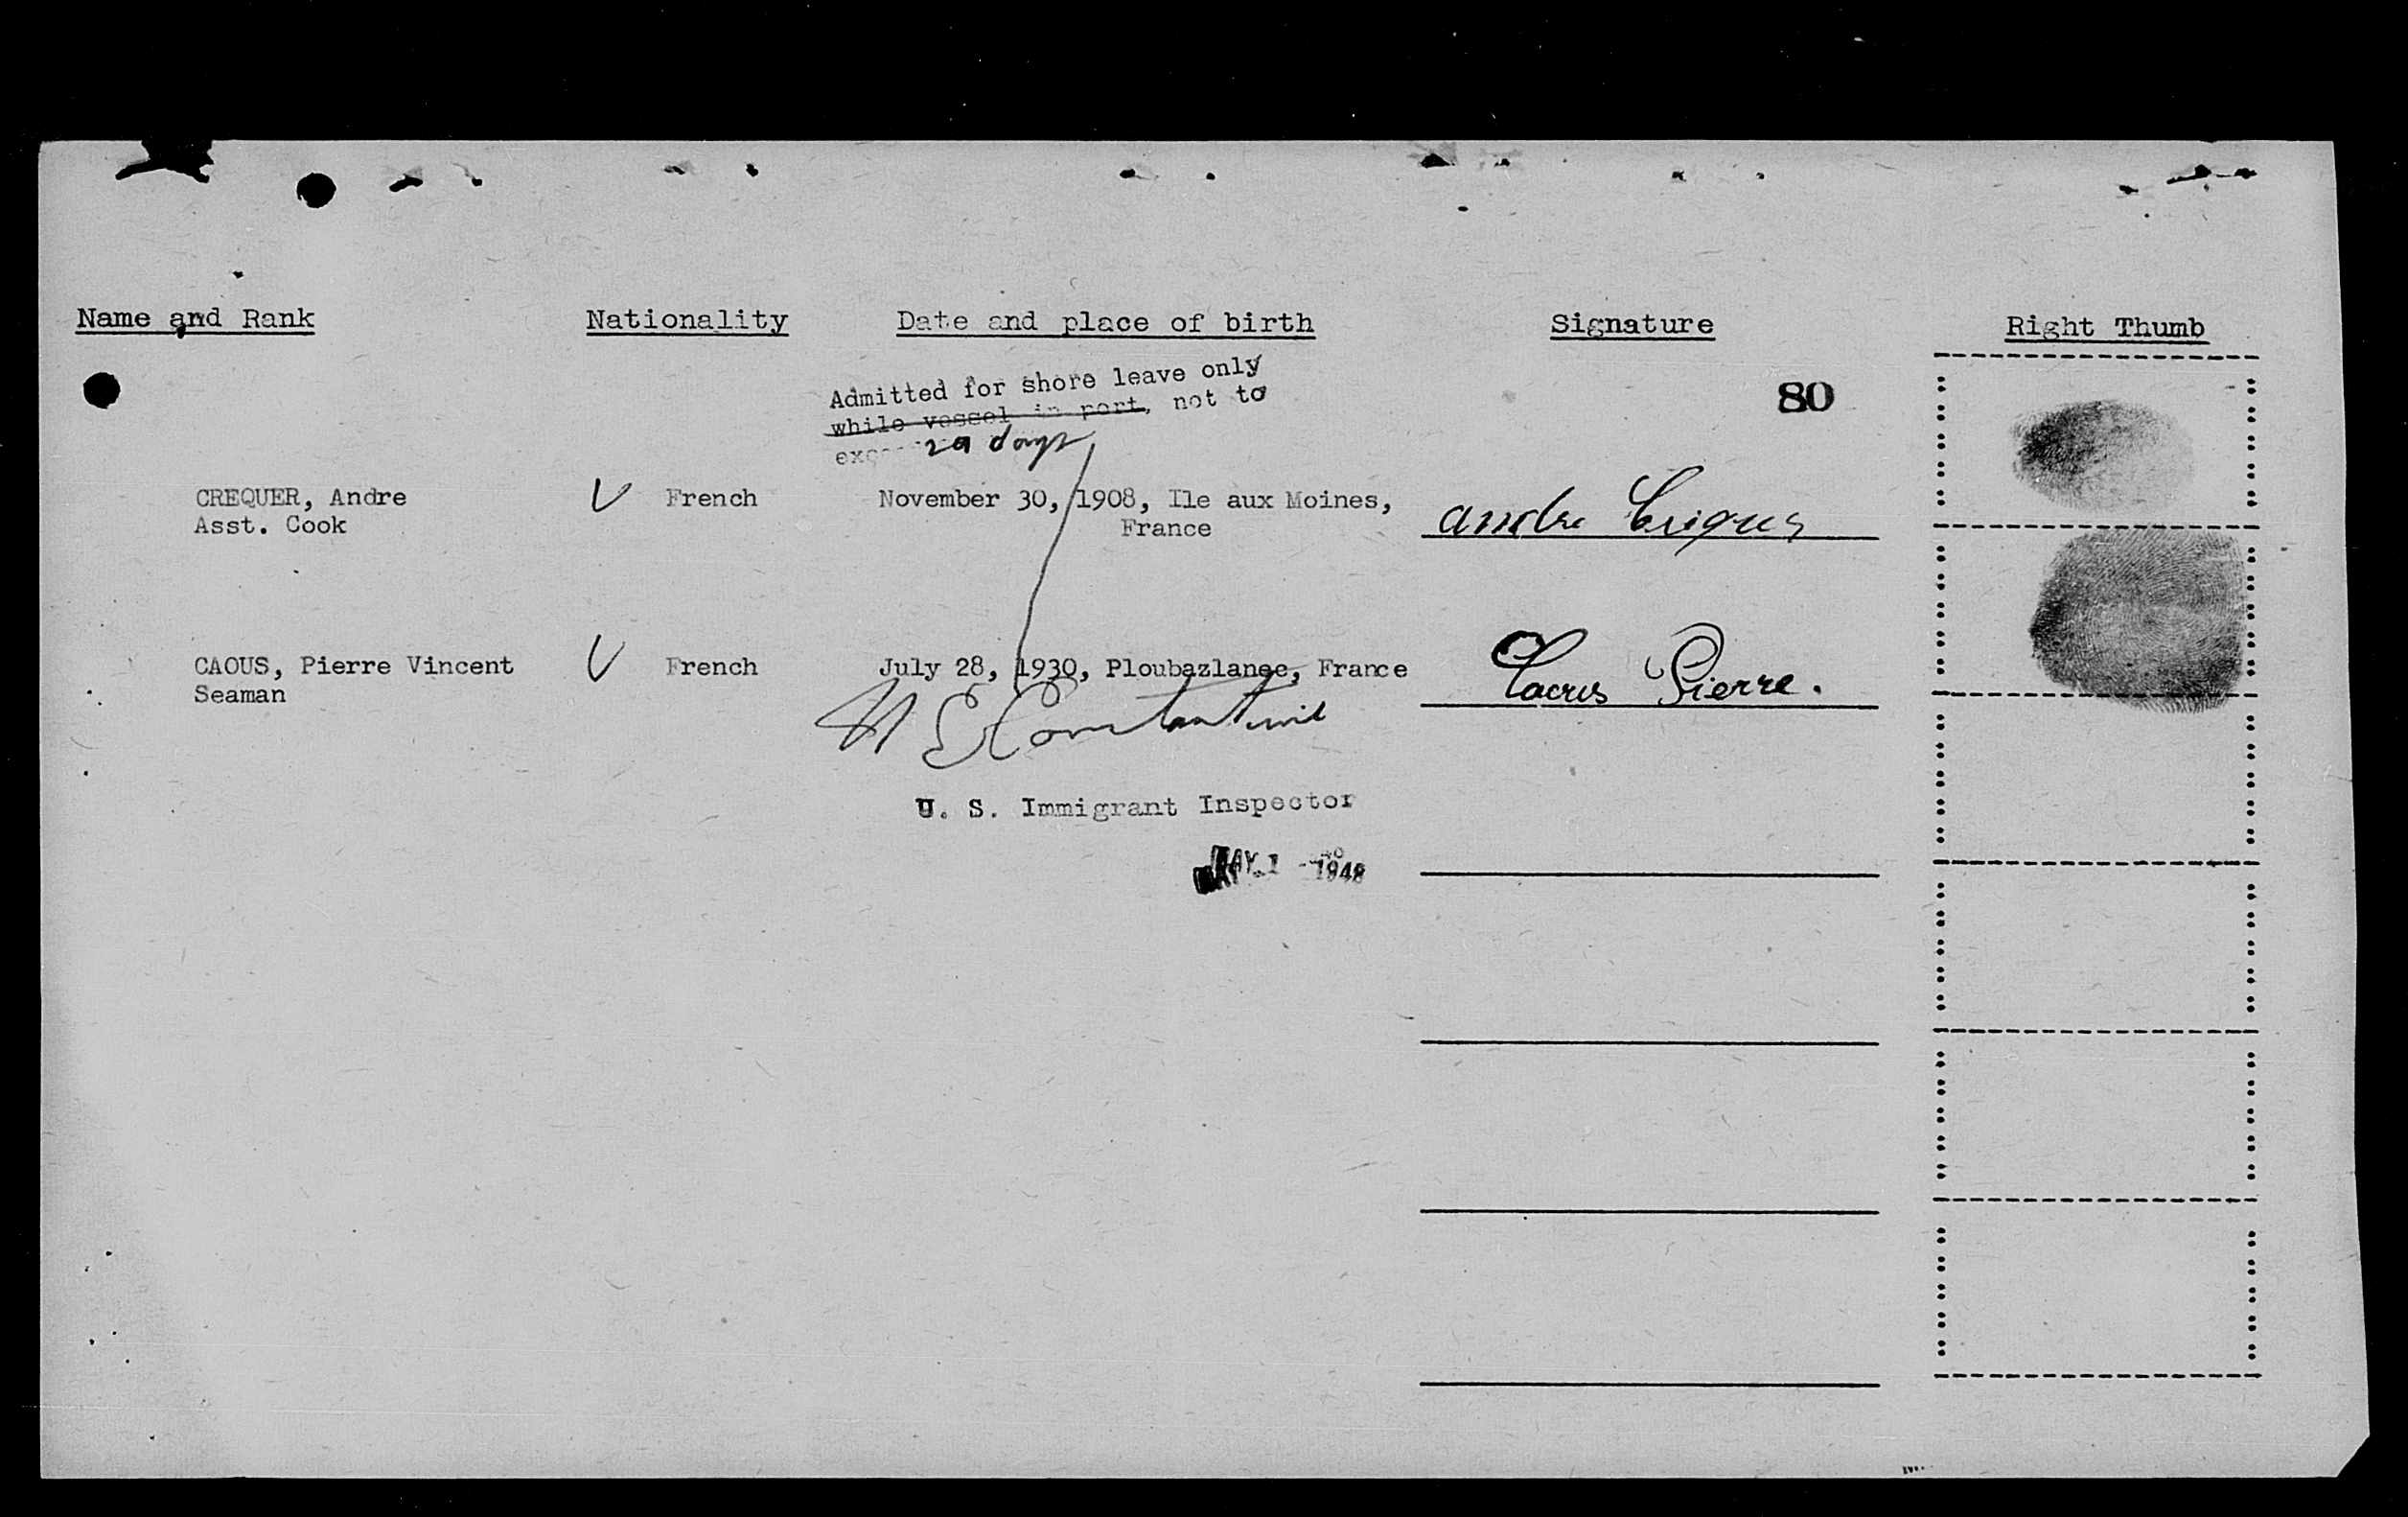 Name and Rank Nationality Date and place of birth Signature Right Thumb
Admitted for shore leave only
while vessel in port, not to
days
80
CREQUER, Andre V French November 30, 1908, Ile aux Moines,
Asst. Cook France
Andre Crequer
CAOUS, Pierre Vincent V French July 28, 1930, Ploubazlanec, France
Seaman
Caous Pierre.
U. S. Immigrant Inspector
MAY 1 - 1948